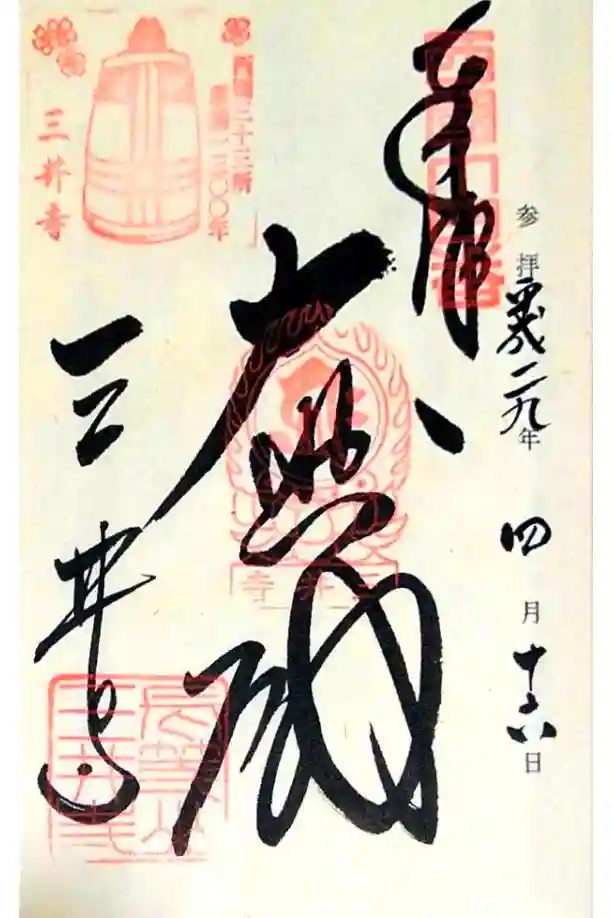 参拝 平成二九年 四月十六日
奉拝
西国十四番
大悲閣
三井寺
西国三十三所
草創一三〇〇年
三井寺
三井寺
長等山
三井寺